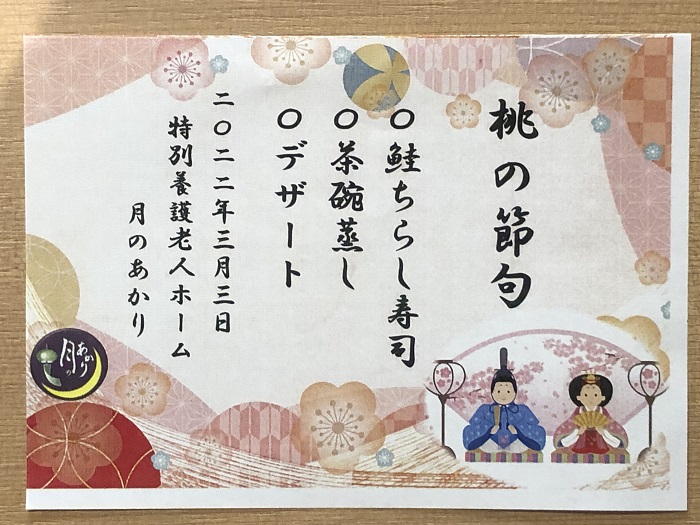 桃の節句
〇鮭ちらし寿司
〇茶碗蒸し
〇デザート
二〇二二年三月三日
特別養護老人ホーム
月のあかり
月のあかり